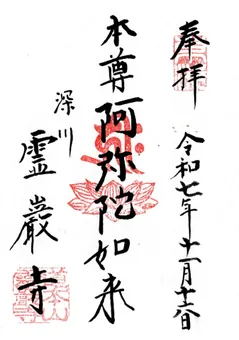 奉拝
令和七年十一月十六日
本尊阿弥陀如来
深川
霊巖寺